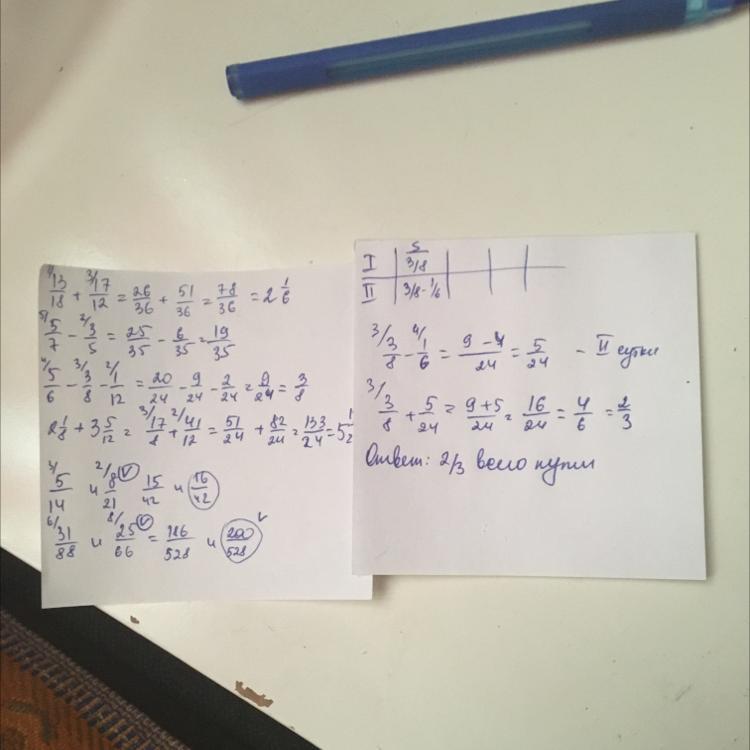 2/13/18 + 3/17/12 = 26/36 + 51/36 = 78/36 = 2 1/6
5/5/7 - 2/3/5 = 25/35 - 6/35 = 19/35
4/5/6 - 3/3/8 - 2/1/12 = 20/24 - 9/24 - 2/24 = 9/24 = 3/8
2 1/8 + 3 5/12 = 3/17/8 + 2/41/12 = 51/24 + 82/24 = 133/24 = 5
3/5/14 и 2/8/21 15/42 и 16/42
6/31/88 и 8/25/66 = 186/528 и 200/528
I S 3/8
II 3/8-1/6
3/3/8 - 4/1/6 = 9-4/24 = 5/24 - II сутки
3/3/8 + 5/24 = 9+5/24 = 16/24 = 4/6 = 2/3
Ответ: 2/3 всего пути